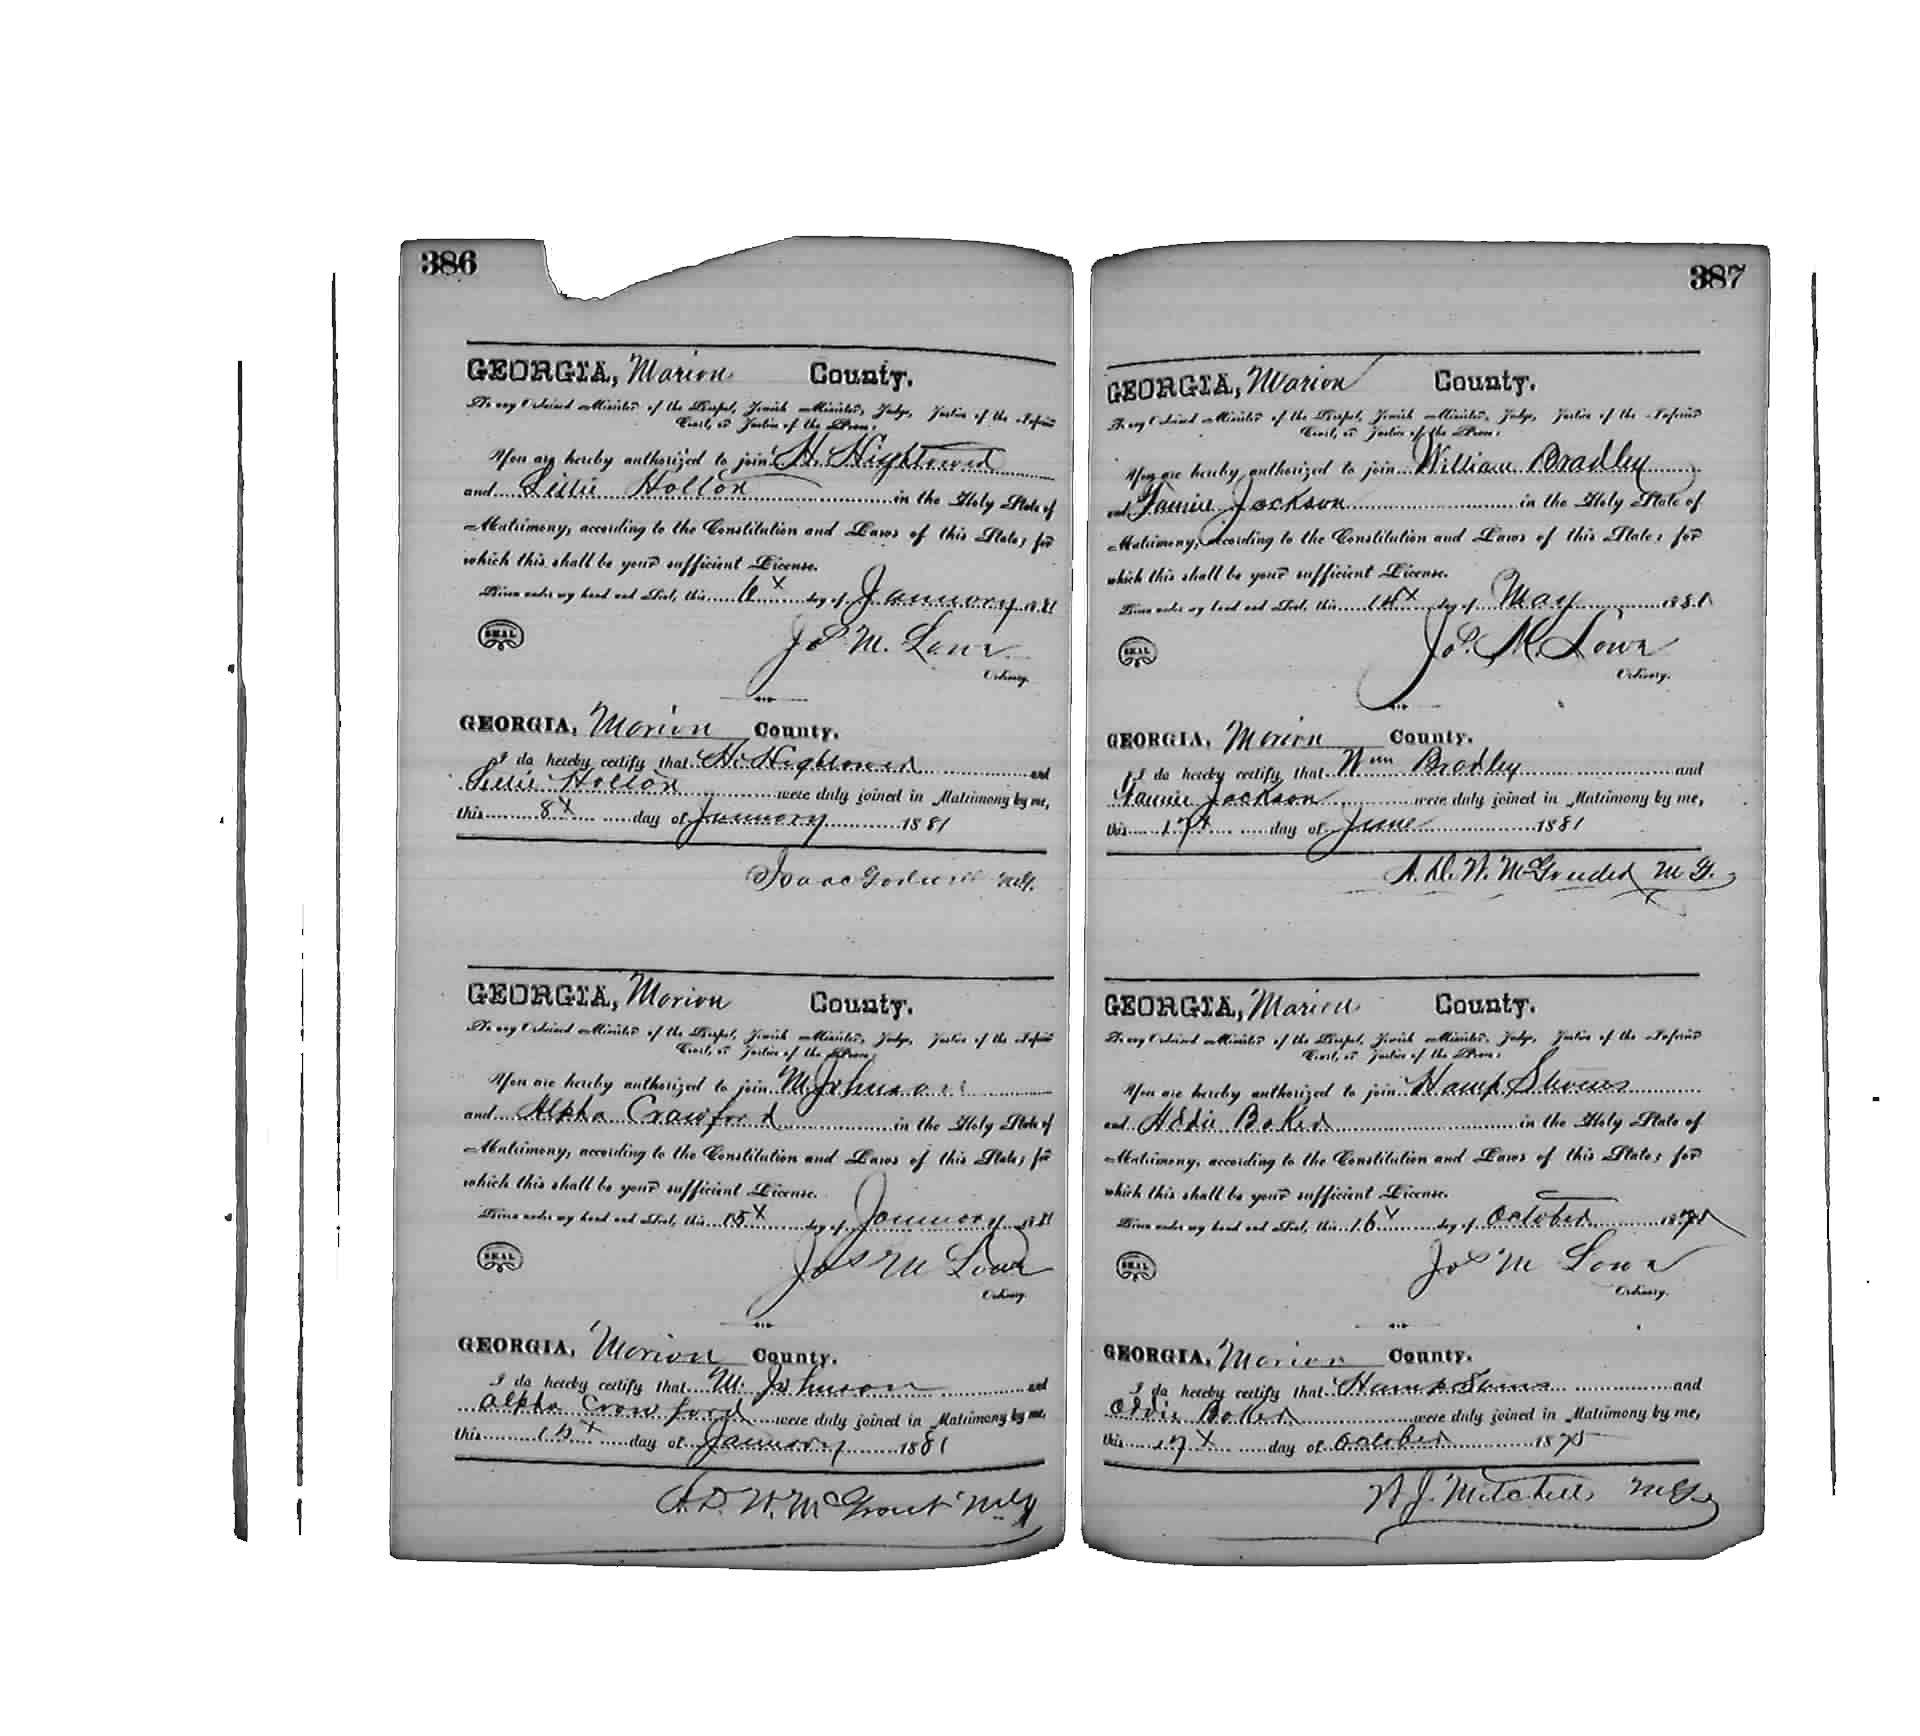 386
GEORGIA, Marion County.
To any Ordained Minister of the Gospel, Jewish Minister, Judge, Justice of the Inferior
Court, or Justice of the Peace:
You are hereby authorized to join H. Hightower
and Lillie Holton in the Holy State of
Matrimony, according to the Constitution and Laws of this State; for
which this shall be your sufficient License.
Given under my hand and Seal, this 6x day of January 1881
SEAL
Jos M. Lowe
Ordinary.
GEORGIA, Marion County.
I do hereby certify that H. Hightower and
Lillie Holton were duly joined in Matrimony by me,
this 8x day of January 1881
Isaac MG.
GEORGIA, Marion County.
To any Ordained Minister of the Gospel, Jewish Minister, Judge, Justice of the Inferior
Court, or Justice of the Peace:
You are hereby authorized to join M. Johnson
and Alpha Crawford in the Holy State of
Matrimony, according to the Constitution and Laws of this State; for
which this shall be your sufficient License.
Given under my hand and Seal, this 15x day of January 1881
SEAL
Jos M Lowe
Ordinary.
GEORGIA, Marion County.
I do hereby certify that M. Johnson and
Alpha Crawford were duly joined in Matrimony by me,
this 15x day of January 1881
A. D. W. McGrout MG
387
GEORGIA, Marion County.
To any Ordained Minister of the Gospel, Jewish Minister, Judge, Justice of the Inferior
Court, or Justice of the Peace:
You are hereby authorized to join William Bradley
and Fannie Jackson in the Holy State of
Matrimony, according to the Constitution and Laws of this State; for
which this shall be your sufficient License.
Given under my hand and Seal, this 14x day of May 1881
SEAL
Jos. M. Lowe
Ordinary.
GEORGIA, Marion County.
I do hereby certify that Wm Bradley and
Fannie Jackson were duly joined in Matrimony by me,
this 17x day of June 1881
A. D. W. McGruder M G.
GEORGIA, Marion County.
To any Ordained Minister of the Gospel, Jewish Minister, Judge, Justice of the Inferior
Court, or Justice of the Peace:
You are hereby authorized to join Hamp Stevens
and Addie Baker in the Holy State of
Matrimony, according to the Constitution and Laws of this State; for
which this shall be your sufficient License.
Given under my hand and Seal, this 16x day of October
SEAL
Jos M Lowe
Ordinary.
GEORGIA, Marion County.
I do hereby certify that Hamp and
Addie Baker were duly joined in Matrimony by me,
this 17x day of October 1875
W J. Mitchell MG